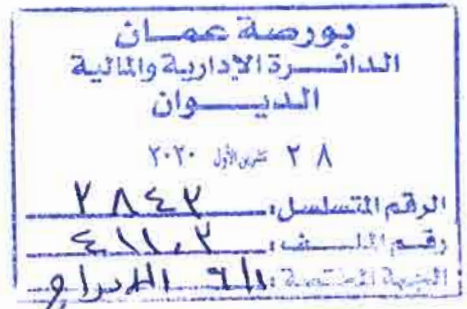 بورصة عمـــان
الدائـــــرة الإدارية والمالية
الديـــــوان
٢٨ تشرين الأول ٢٠٢٠
الرقم المتسلسل: ٢٨٤٣
رقم الملـــف: ٤١١٠٢
الجهة المختصة: الإدراج